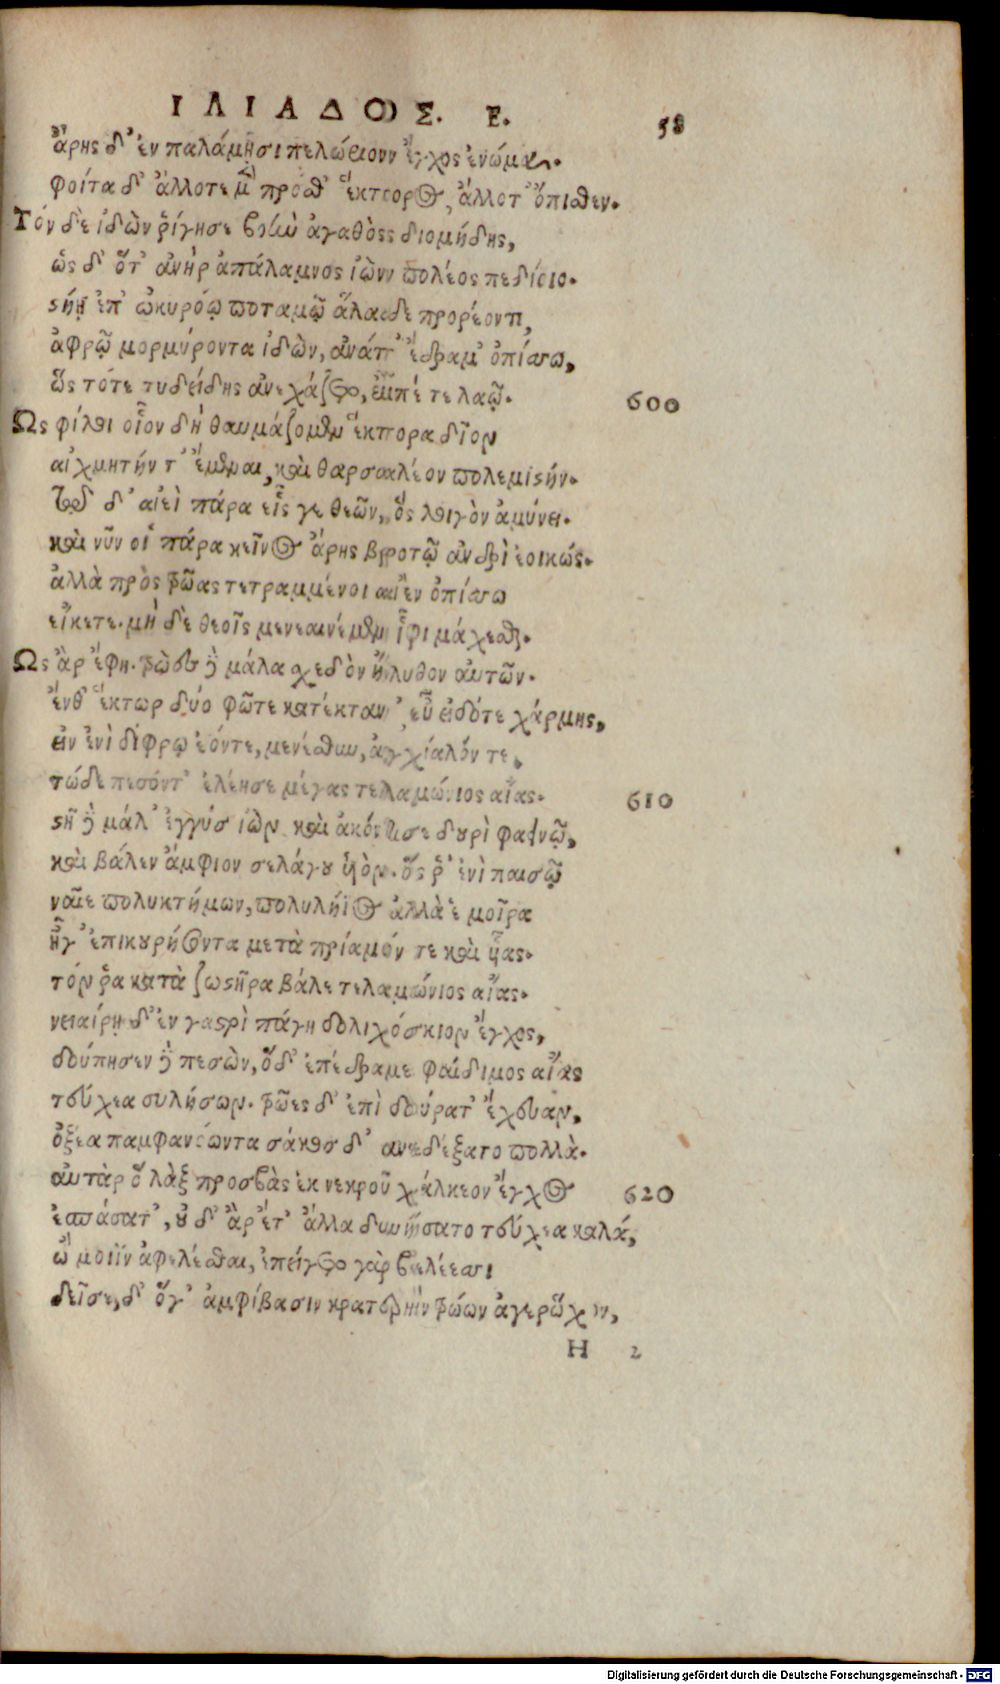 ΙΛΙΑΔΟΣ. Ε. 58
ἄρης δ' ἐν παλάμῃσι πελώριον ἔγχος ἐνώμα.
φοίτα δ' ἄλλοτε μὲν πρόσθ' ἕκτορος, ἄλλοτ' ὄπισθεν.
Τόν δὲ ἰδὼν ῥίγησε βοὴν ἀγαθὸς διομήδης,
ὡς δ' ὅτ' ἀνὴρ ἀπάλαμνος ἰὼν πολέος πεδίοιο.
στήῃ ἐπ' ὠκυρόῳ ποταμῷ ἅλαδε προρέοντι,
ἀφρῷ μορμύροντα ἰδὼν, ἀνάτ' ἔδραμ' ὀπίσσω,
ὣς τότε τυδείδης ἀνεχάζετο, εἶπέ τε λαῷ. 600
Ὦς φίλοι οἷον δὴ θαυμάζομεν ἕκτορα δῖον
αἰχμητήν τ' ἔμεναι, καὶ θαρσαλέον πολεμιστήν.
τῷ δ' αἰεὶ πάρα εἷς γε θεῶν, ὃς λοιγὸν ἀμύνει.
καὶ νῦν οἱ πάρα κεῖνος ἄρης βροτῷ ἀνδρὶ ἐοικώς.
ἀλλὰ πρὸς τρῶας τετραμμένοι αἰὲν ὀπίσσω
εἴκετε. μὴ δὲ θεοῖς μενεαινέμεν ἶφι μάχεσθαι.
Ὣς ἂρ ἔφη. τρῶες δὲ μάλα σχεδὸν ἤλυθον αὐτῶν.
ἔνθ' ἕκτωρ δύο φῶτε κατέκταν' εὖ εἰδότε χάρμης,
εἰν ἑνὶ δίφρῳ ἐόντε, μενέσθην, ἀγχίαλόν τε.
τώδε πεσόντ' ἐλέησε μέγας τελαμώνιος αἴας. 610
στῆ δὲ μάλ' ἐγγύσ ἰὼν καὶ ἀκόντισε δουρὶ φαεινῷ,
καὶ βάλεν ἄμφιον σελάγου υἱὸν. ὅς ῥ' ἐνὶ παισῷ
ναῖε πολυκτήμων, πολυλήϊος ἀλλὰ ἑ μοῖρα
ἦγ' ἐπικουρήσοντα μετὰ πρίαμόν τε καὶ υἷας.
τόν ῥα κατὰ ζωστῆρα βάλε τελαμώνιος αἴας.
νειαίρῃ δ' ἐν γαστρὶ πάγη δολιχόσκιον ἔγχος,
δούπησεν δὲ πεσὼν, ὅδ' ἐπέδραμε φαίδιμος αἴας
τεύχεα συλήσων. τρῶες δ' ἐπὶ δούρατ' ἔχευαν,
ὀξέα παμφανόωντα σάκος δ' ἀνεδέξατο πολλὰ.
αὐτὰρ ὅ λὰξ προσβὰς ἐκ νεκροῦ χάλκεον ἔγχος 620
ἐσπάσατ', οὐ δ' ἂρ ἔτ' ἄλλα δυνήσατο τεύχεα καλά,
ὤμοιϊν ἀφελέσθαι, ἐπείγετο γὰρ βελέεσσι
δεῖσε, δ' ὅγ' ἀμφίβασιν κρατερὴν τρώων ἀγερώχων,
Η 2
Digitalisierung gefördert durch die Deutsche Forschungsgemeinschaft - DFG